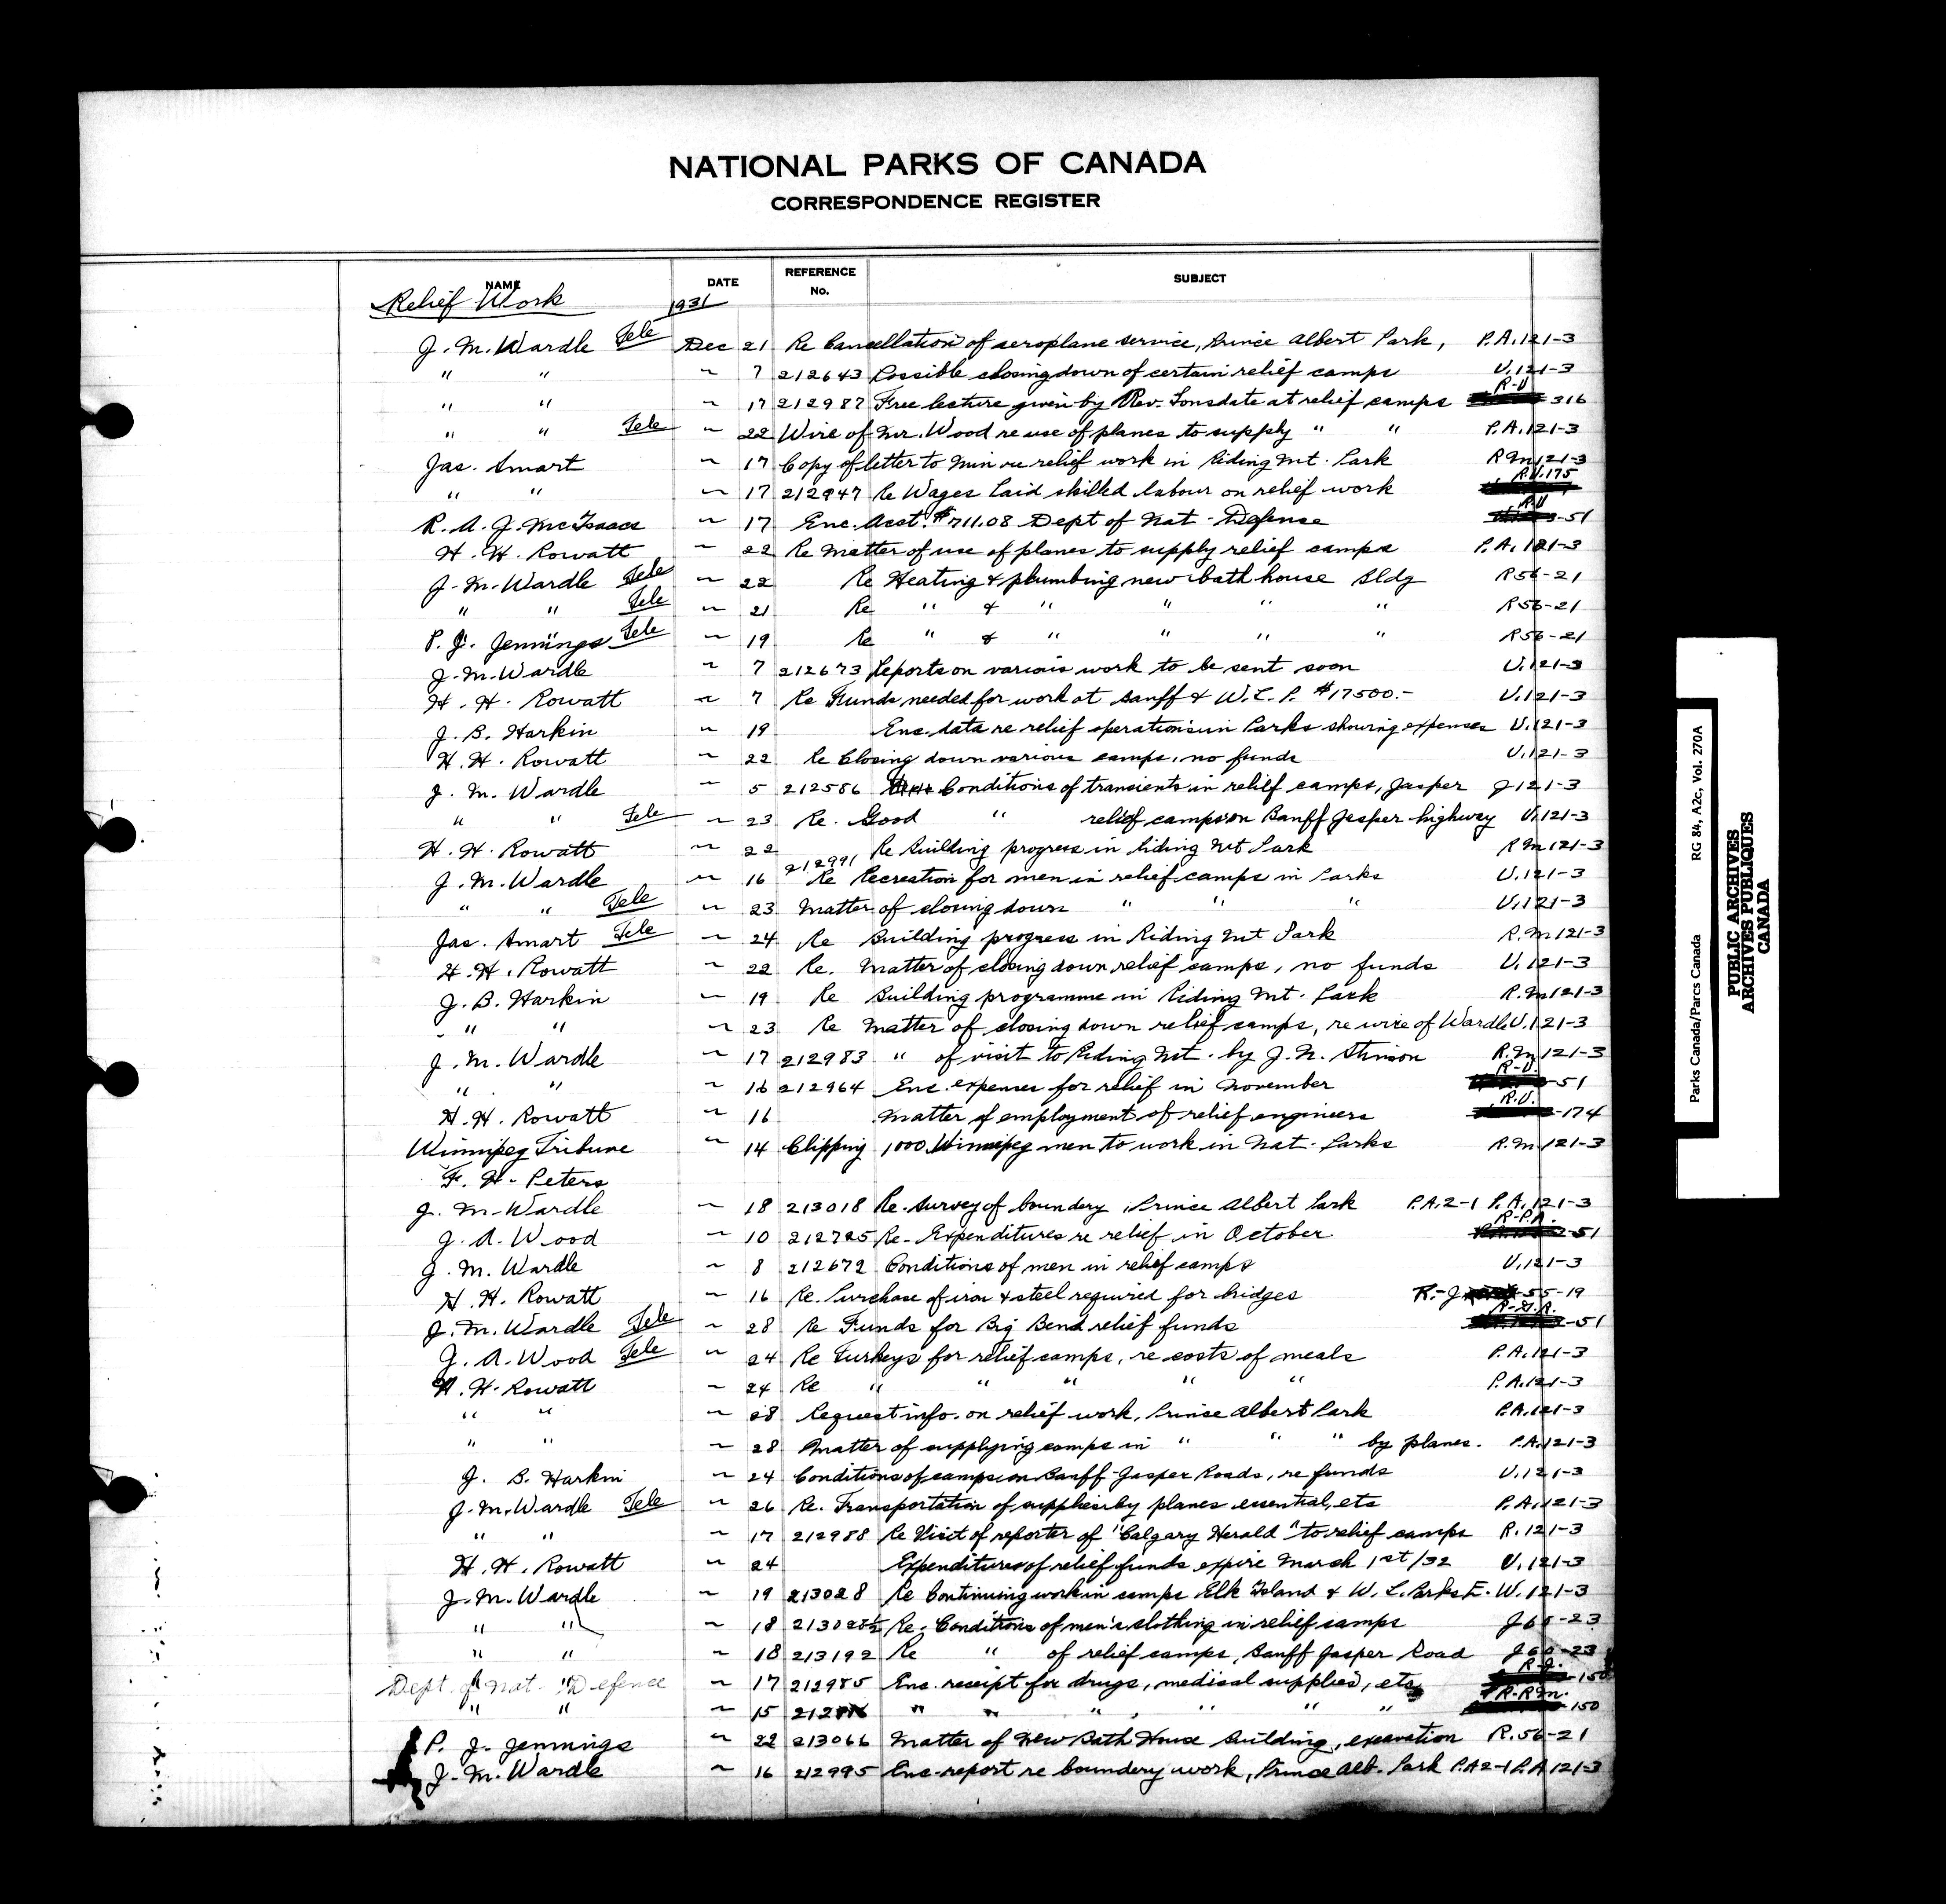 NATIONAL PARKS OF CANADA
CORRESPONDENCE REGISTER
NAME DATE REFERENCE No. SUBJECT
Relief Work 1931
J. M. Wardle Tele Dec 21 Re Cancellation of aeroplane service, Prince Albert Park, P.A. 121-3
" " ~ 7 212643 Possible closing down of certain relief camps U. 121-3
" " ~ 17 212987 Free lecture given by Rev. Lonsdale at relief camps R-U 316
" " Tele ~ 22 Wire of Mr. Wood re use of planes to supply " " P.A. 121-3
Jas. Smart ~ 17 Copy of letter to Min re relief work in Riding Mt. Park R M 121-3
" " ~ 17 212947 Re Wages Paid skilled labour on relief work R.U. 175
R. A. J. McIsaacs ~ 17 Enc. Acct. #711.08 Dept of Nat. Defense R U -51
H. H. Rowatt ~ 22 Re Matter of use of planes to supply relief camps P.A. 121-3
J. M. Wardle Tele ~ 22 Re Heating & plumbing new bath house Bldg R 56-21
" " Tele ~ 21 Re " & " " " " R 56-21
P. J. Jennings Tele ~ 19 Re " & " " " " R 56-21
J. M. Wardle ~ 7 212673 Reports on various work to be sent soon U. 121-3
H. H. Rowatt ~ 7 Re Funds needed for work at Banff & W. L. P. #17500.- U. 121-3
J. B. Harkin ~ 19 Enc. data re relief operations in Parks showing expenses U. 121-3
H. H. Rowatt ~ 22 Re Closing down various camps, no funds U. 121-3
J. M. Wardle ~ 5 212586 Conditions of transients in relief camps, Jasper J 121-3
" " Tele ~ 23 Re. Good " relief camps on Banff Jasper highway U. 121-3
H. H. Rowatt ~ 22 Re Building progress in Riding Mt Park R M 121-3
J. M. Wardle ~ 16 212991 Re Recreation for men in relief camps in Parks U. 121-3
" " Tele ~ 23 Matter of closing down " " " U. 121-3
Jas. Smart Tele ~ 24 Re Building progress in Riding Mt Park R. M 121-3
H. H. Rowatt ~ 22 Re. Matter of closing down relief camps, no funds U. 121-3
J. B. Harkin ~ 19 Re Building programme in Riding Mt. Park R. M 121-3
" " ~ 23 Re Matter of closing down relief camps, re wire of Wardle U. 121-3
J. M. Wardle ~ 17 212983 " of visit to Riding Mt. by J. N. Stinson R. M 121-3
" " ~ 16 212964 Enc. expenses for relief in November R-U. -51
H. H. Rowatt ~ 16 Matter of employment of relief engineers R.U. -174
Winnipeg Tribune ~ 14 Clipping 1000 Winnipeg men to work in Nat. Parks R. M. 121-3
F. H. Peters
J. M. Wardle ~ 18 213018 Re. Survey of boundery, Prince Albert Park P.A. 2-1 P.A. 121-3
J. A. Wood ~ 10 212725 Re- Expenditures re relief in October R-P.A. -51
J. M. Wardle ~ 8 212672 Conditions of men in relief camps U. 121-3
H. H. Rowatt ~ 16 Re. Purchase of iron & steel required for bridges R.-J 55-19
J. M. Wardle Tele ~ 28 Re Funds for Big Bend relief funds -51
J. A. Wood Tele ~ 24 Re Turkeys for relief camps, re costs of meals P.A. 121-3
H. H. Rowatt ~ 24 Re " " " " " P.A. 121-3
" " ~ 28 Request info. on relief work, Prince Albert Park P.A. 121-3
" " ~ 28 Matter of supplying camps in " " " by planes. P.A. 121-3
J. B. Harkin ~ 24 Conditions of camps on Banff-Jasper Roads, re funds U. 121-3
J. M. Wardle Tele ~ 26 Re. Transportation of supplies by planes essential, etc P.A. 121-3
" " ~ 17 212988 Re Visit of reporter of "Calgary Herald" to relief camps R. 121-3
H. H. Rowatt ~ 24 Expenditures of relief funds expire March 1st/32 U. 121-3
J. M. Wardle ~ 19 213028 Re Continuing work in camps Elk Island & W. L. Parks E. W. 121-3
" " ~ 18 213028½ Re. Conditions of men's clothing in relief camps J 60-23
" " ~ 18 213192 Re " of relief camps, Banff Jasper Road J 60-23
Dept. of Nat. Defence ~ 17 212985 Enc. receipt for drugs, medical supplies, etc R-J. -150
" " ~ 15 " " " " " " R-R M. -150
P. J. Jennings ~ 22 213066 Matter of New Bath House Building, excavation R. 56-21
J. M. Wardle ~ 16 212995 Enc. report re boundery work, Prince Alb. Park P.A 2-1 P.A 121-3
Parks Canada/Parcs Canada RG 84, A2c, Vol. 270A
PUBLIC ARCHIVES
ARCHIVES PUBLIQUES
CANADA